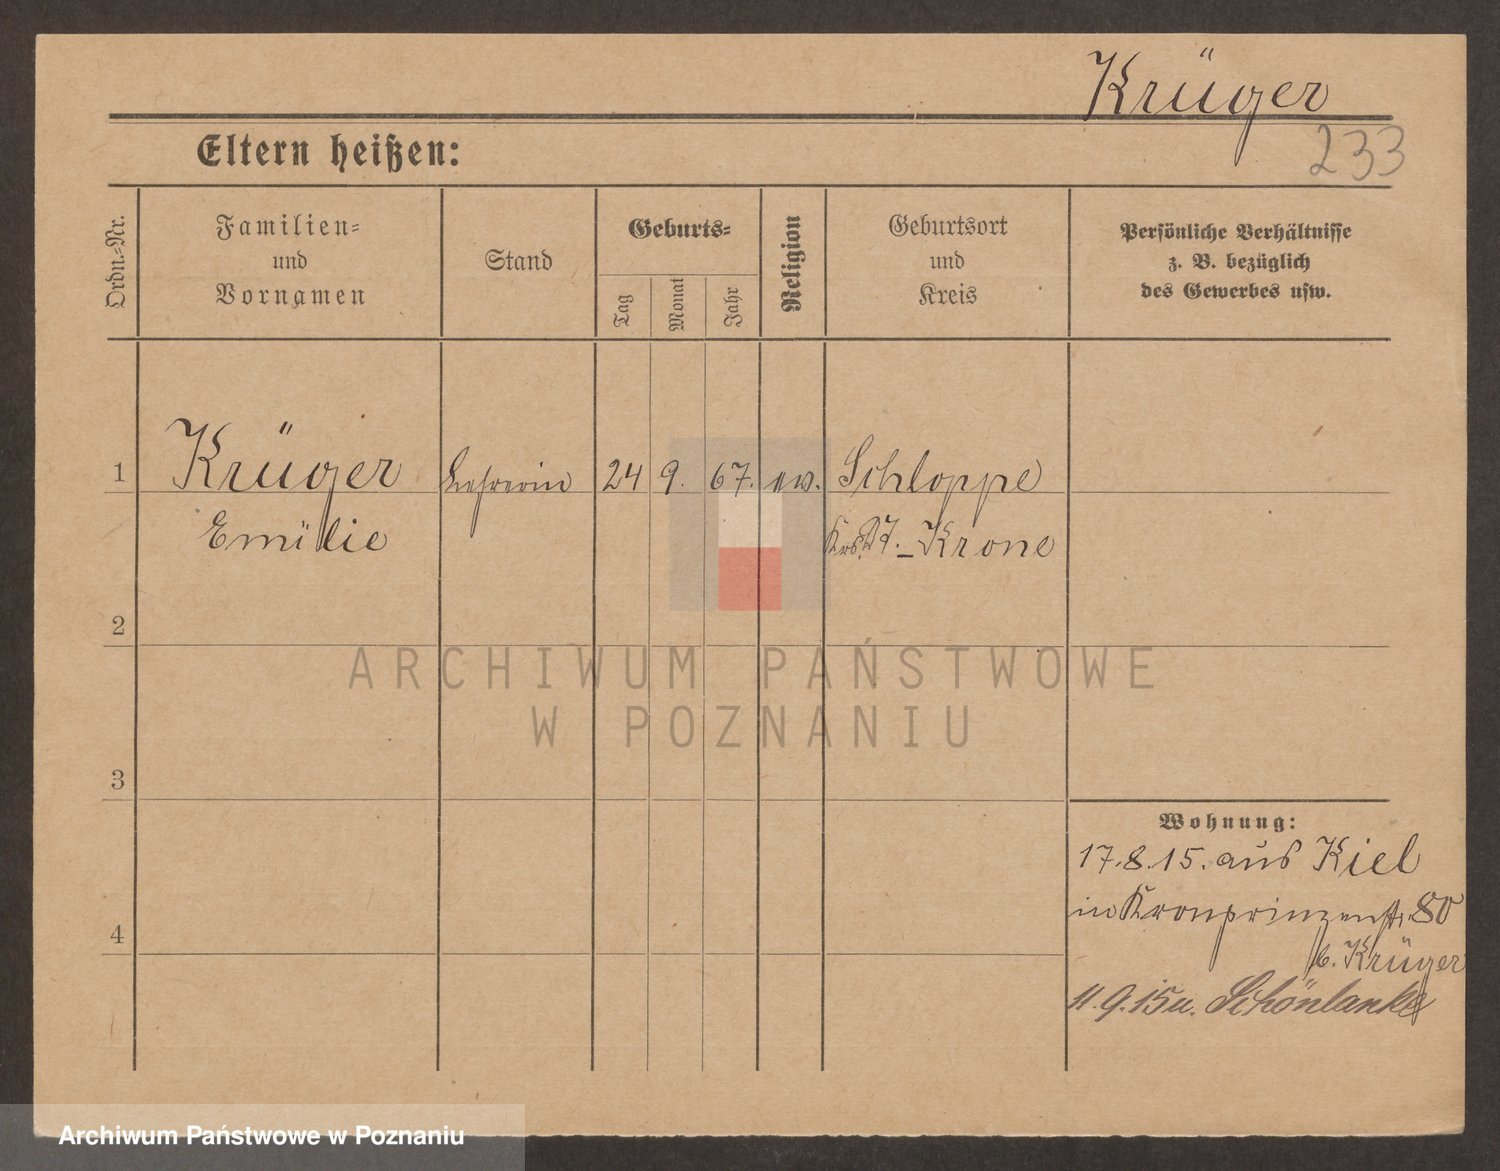 Krüger
233
Eltern heißen:
Ordn.-Nr.
Familien-
und
Vornamen
Stand
Geburts-
Tag
Monat
Jahr
Religion
Geburtsort
und
Kreis
Persönliche Verhältnisse
z. B. bezüglich
des Gewerbes usw.
1 Krüger Lehrerin 24 9. 67. ev. Schloppe
Emilie Krs. Dt.-Krone
2
3
4
Wohnung:
17.8.15. aus Kiel
in Kronprinzenstr. 80
b. Krüger
11.9.15 n. Schönlanke
ARCHIWUM PAŃSTWOWE
W POZNANIU
Archiwum Państwowe w Poznaniu